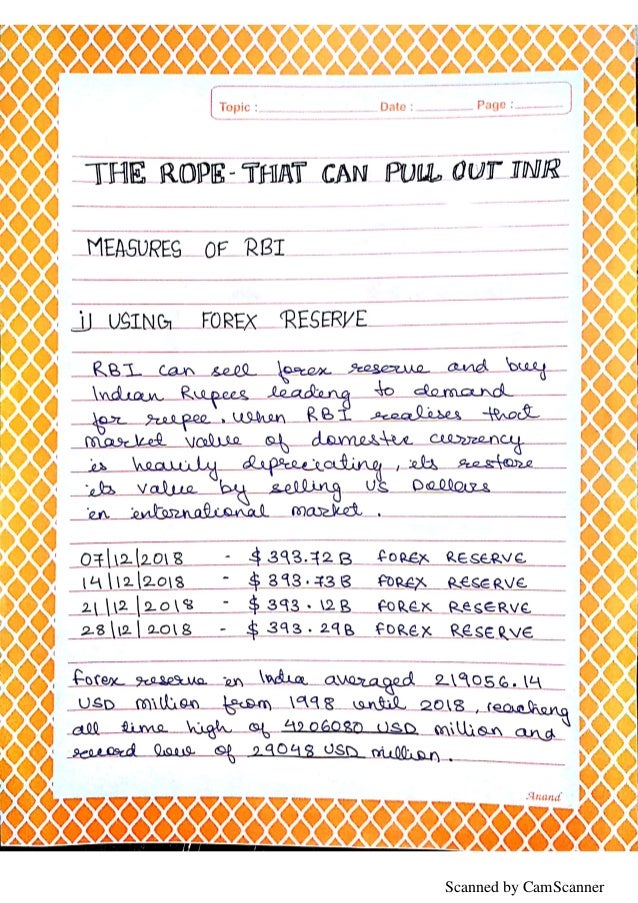 Topic : Date : Page :
THE ROPE - THAT CAN PULL OUT INR
MEASURES OF RBI
i) USING FOREX RESERVE
RBI can sell forex reserve and buy
Indian Rupees leading to demand
for rupee. When RBI realises that
market value of domestic currency
is heavily depreciating, its restore
its value by selling US Dollars
in international market.
07/12/2018 - $ 393.72B FOREX RESERVE
14/12/2018 - $ 393.73B FOREX RESERVE
21/12/2018 - $ 393.12B FOREX RESERVE
28/12/2018 - $ 393.29B FOREX RESERVE
Forex reserve in India averaged 219056.14
USD million from 1998 until 2018, reaching
all time high of 4206080 USD million and
record low of 29048 USD million.
Anand
Scanned by CamScanner